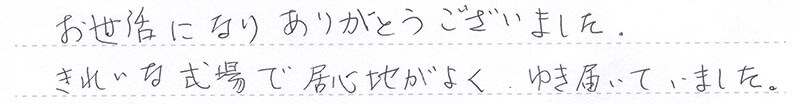 お世話になりありがとうございました.
きれいな式場で居心地がよく.ゆき届いていました。